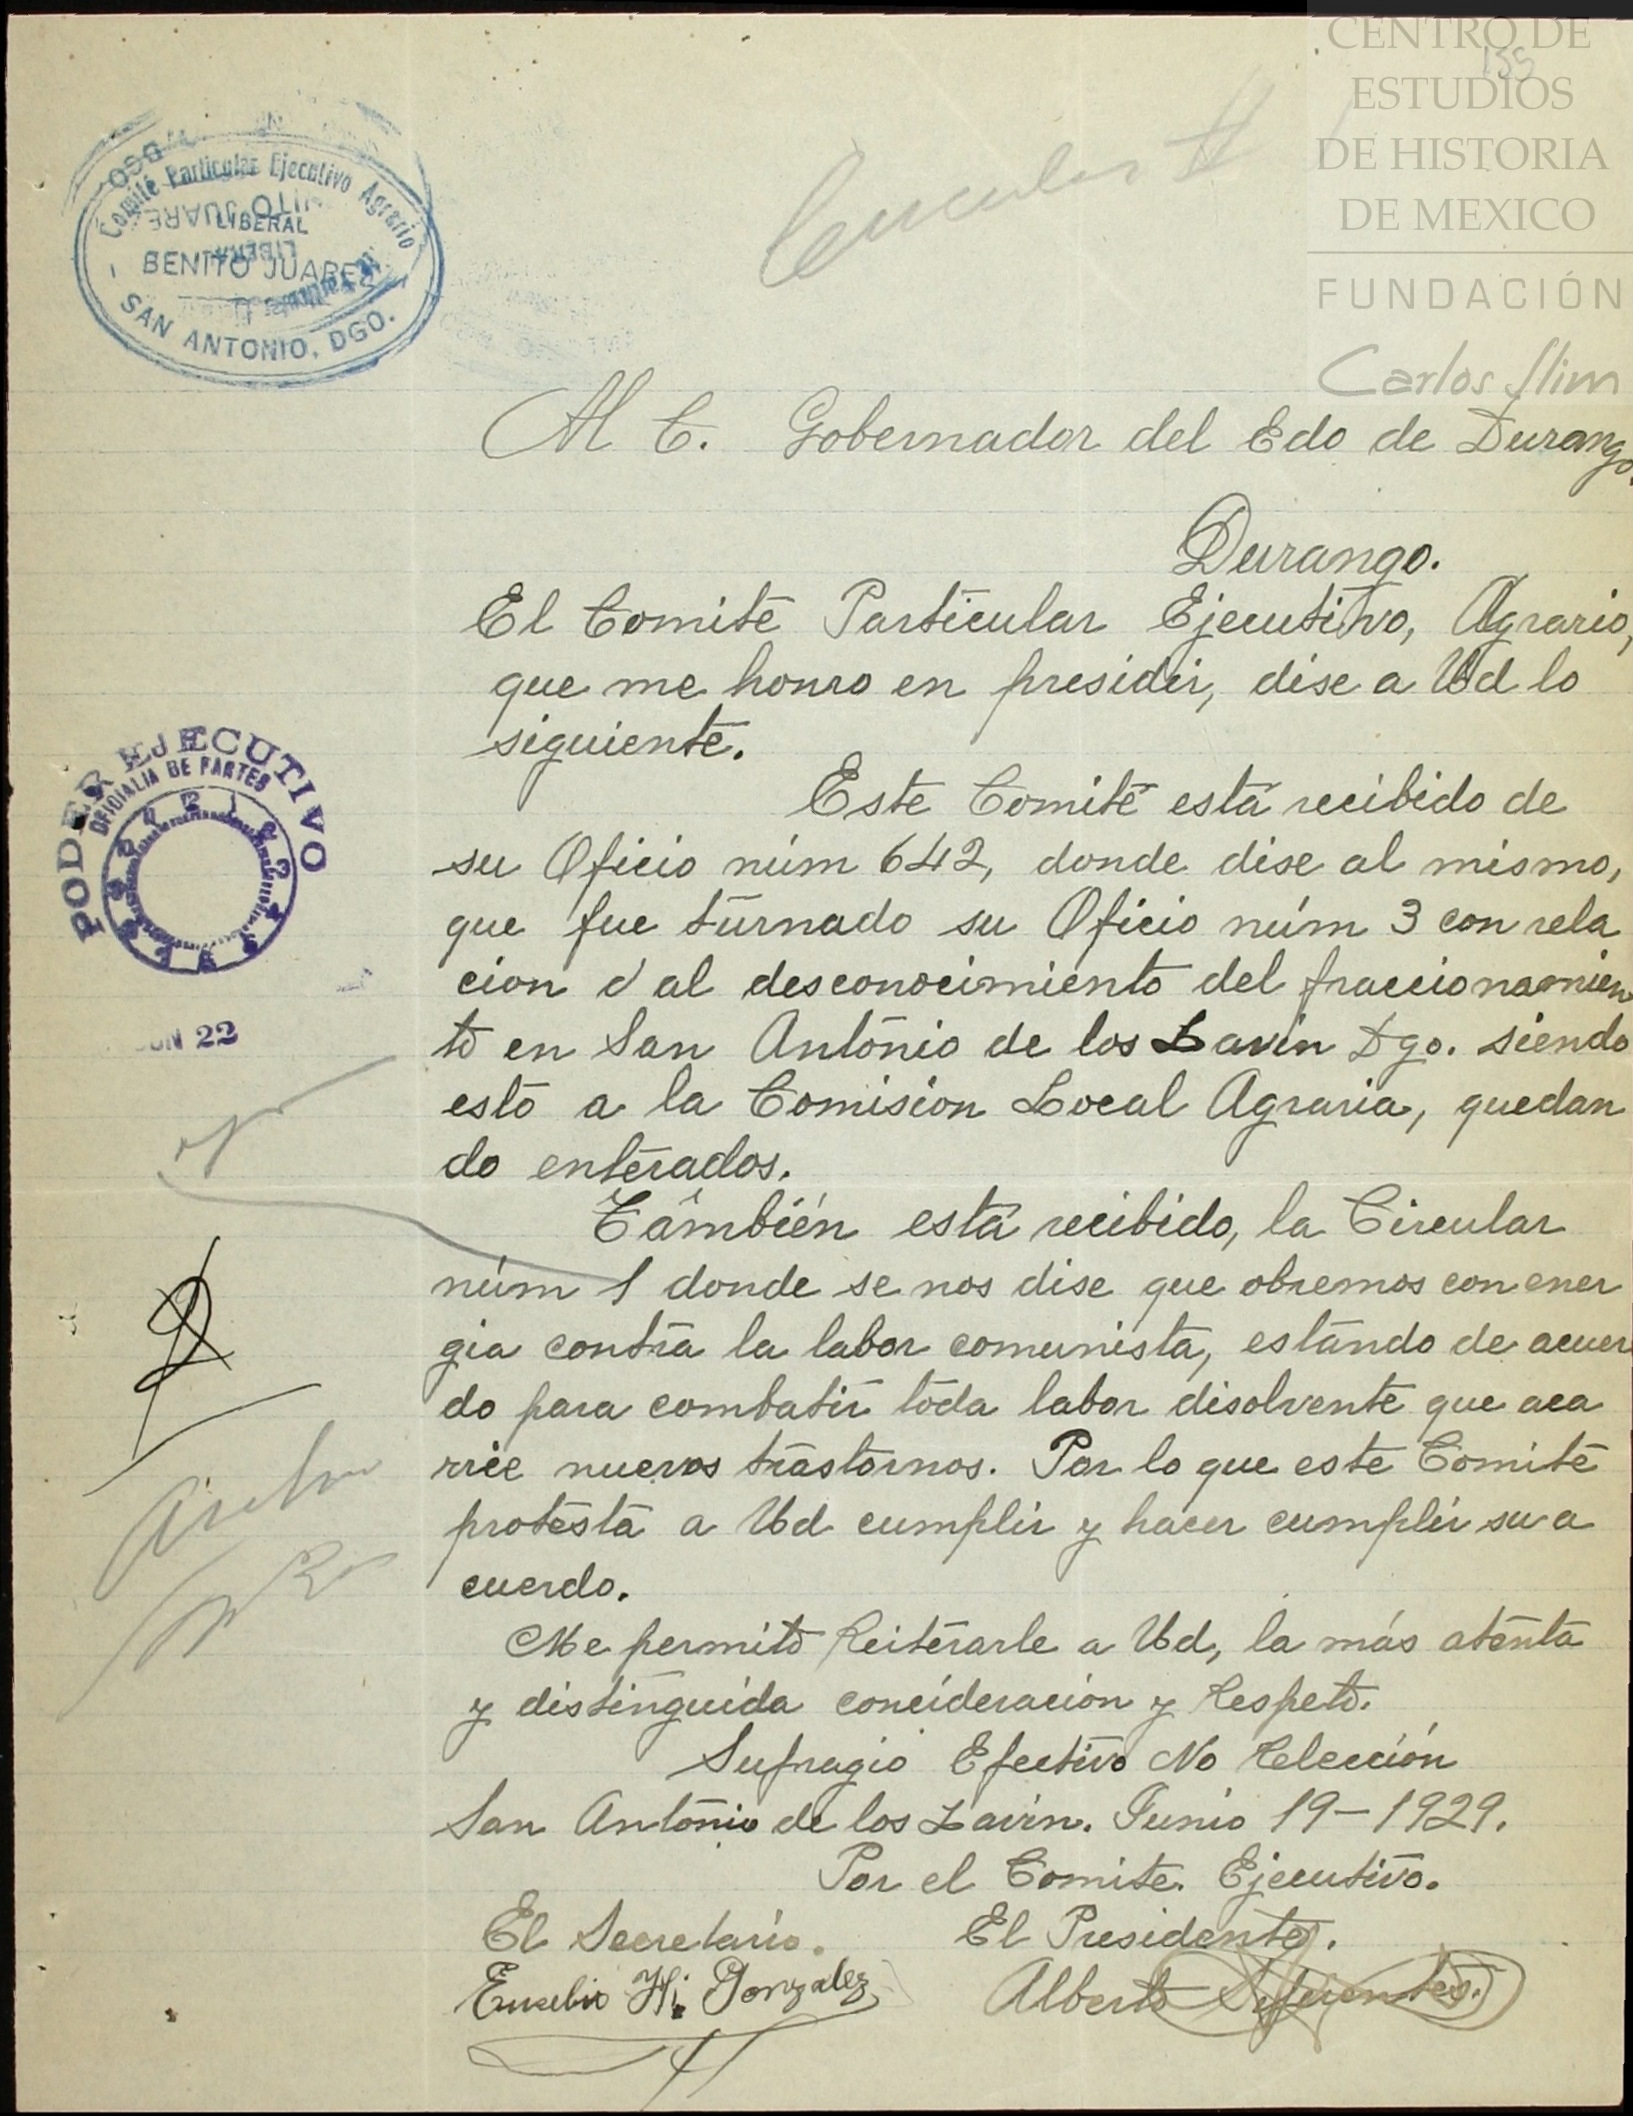 CENTRO DE
ESTUDIOS
DE HISTORIA
DE MEXICO
FUNDACIÓN
Carlos Slim
135
Circular
Comité Particular Ejecutivo Agrario
LIBERAL
BENITO JUAREZ
SAN ANTONIO, DGO.
Al C. Gobernador del Edo de Durango.
Durango.
El Comité Particular Ejecutivo, Agrario,
que me honro en presidir, dise a Ud lo
siguiente.
Este Comité está recibido de
su Oficio núm 642, donde dise al mismo,
que fue turnado su Oficio núm 3 con rela
cion d al desconocimiento del fraccionamien
to en San Antonio de los Lavin Dgo. siendo
esto a la Comision Local Agraria, quedan
do enterados.
También está recibido, la Circular
núm 1 donde se nos dise que obremos con ener
gia contra la labor comunista, estando de acuer
do para combatir toda labor disolvente que aca
rrie nuevos trastornos. Por lo que este Comité
protesta a Ud cumplir y hacer cumplir su a
cuerdo.
Me permito Reiterarle a Ud, la más atenta
y distinguida concideración y Respeto.
Sufragio Efectivo No Relección
San Antonio de los Lavin. Junio 19-1929.
Por el Comite Ejecutivo.
El Secretario. El Presidente.
Eusebio H. Gonzalez Alberto Sifuentes.
PODER EJECUTIVO
OFICIALIA DE PARTES
JUN 22